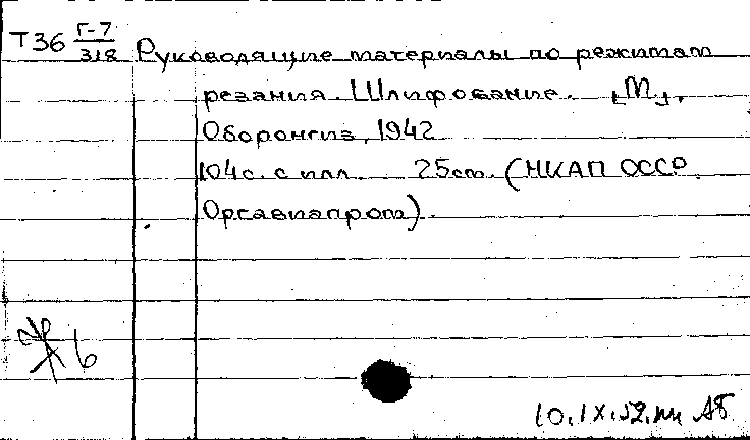 Т36 Г-7/318 Руководящие материалы по режимам
резания. Шлифование. [М],
Оборонгиз, 1942
104с. с илл. 25см. (НКАП СССР
Оргавиапром).
6
10.IX.52. АБ